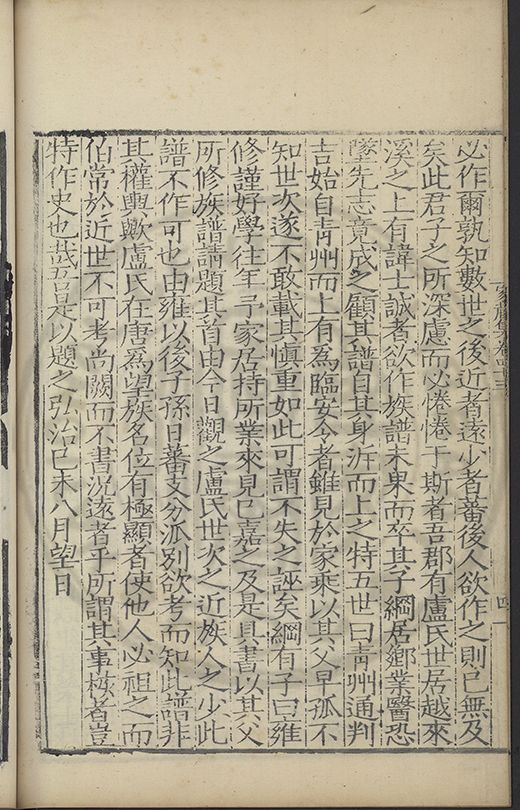 必作爾孰知數世之後近者遠少者蕃後人欲作之則已無及
矣此君子之所深慮而必惓惓于斯者吾郡有盧氏世居越來
溪之上有諱士誠者欲作族譜未果而卒其子綱居鄉業醫恐
墜先志竟成之顧其譜自其身泝而上之特五世曰青州通判
吉始自青州而上有為臨安令者雖見於家乘以其父早孤不
知世次遂不敢載其慎重如此可謂不失之誣矣綱有子曰雍
修謹好學往年予家居持所業來見已嘉之及是具書以其父
所修族譜請題其首由今日觀之盧氏世次之近族人之少此
譜不作可也由雍以後子孫日蕃支分派別欲考而知此譜非
其權輿歟盧氏在唐為望族名位有極顯者使他人必祖之而
伯常於近世不可考尚闕而不書況遠者乎所謂其事核者豈
特作史也哉吾是以題之弘治己未八月望日
家藏集卷四三